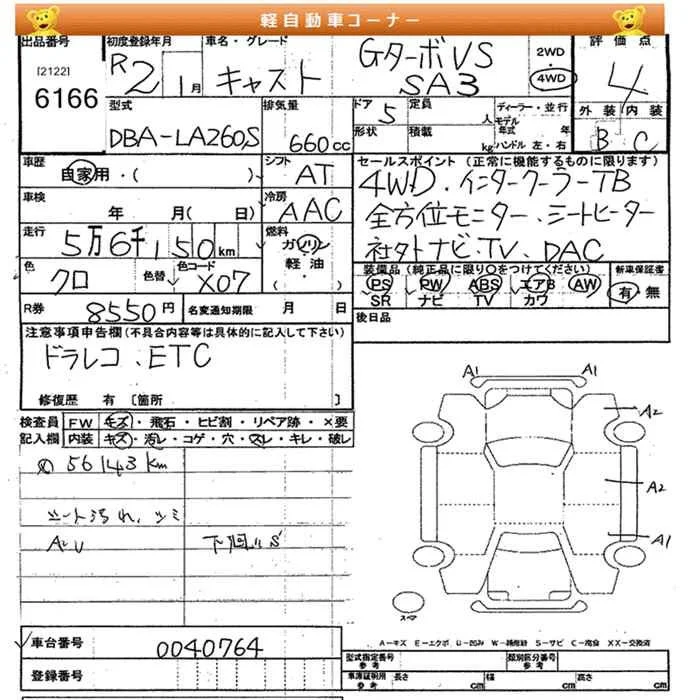 軽自動車コーナー
出品番号 初度登録年月 車名・グレード 2WD 4WD 評価点
[2122] 6166
R2 1月 キャスト GターボVS SA3 4
型式 排気量 ドア 定員 ディーラー・並行 外装 内装
DBA-LA260S 660cc 5 人 モデル年式 年 B C
形状 積載 kg ハンドル 左・右
車歴 シフト セールスポイント (正常に機能するものに限ります)
自家用・( ) AT 4WD・インタークーラーTB
車検 冷房 全方位モニター、シートヒーター
年 月( 日) AAC 社外ナビ、TV、DAC
走行 燃料
5万6千150km ガソリン・軽油 ( )
装備品 (純正品に限り○をつけてください) 新車保証書
色 色替 色コード PS PW ABS エアB AW 有・無
クロ X07 SR ナビ TV カワ
R券 8550円 名変通知期限 月 日 後日品
注意事項申告欄 (不具合内容等は具体的に記入して下さい)
ドラレコ、ETC
修復歴 有 〔箇所 〕
検査員 FW キズ・飛石・ヒビ割・リペア跡・×要
記入欄 内装 キズ・汚レ・コゲ・穴・スレ・キレ・破レ
56143km
シート汚れ、シミ
A1 A1
A2
A2
A1
スペア
A-キズ E-エクボ U-凹み W-補修跡 S-サビ C-腐食 XX-交換済
車台番号 0040764
型式指定番号 参考 類別区分番号 参考
登録番号 車庫証明用 参考 長さ cm 幅 cm 高さ cm